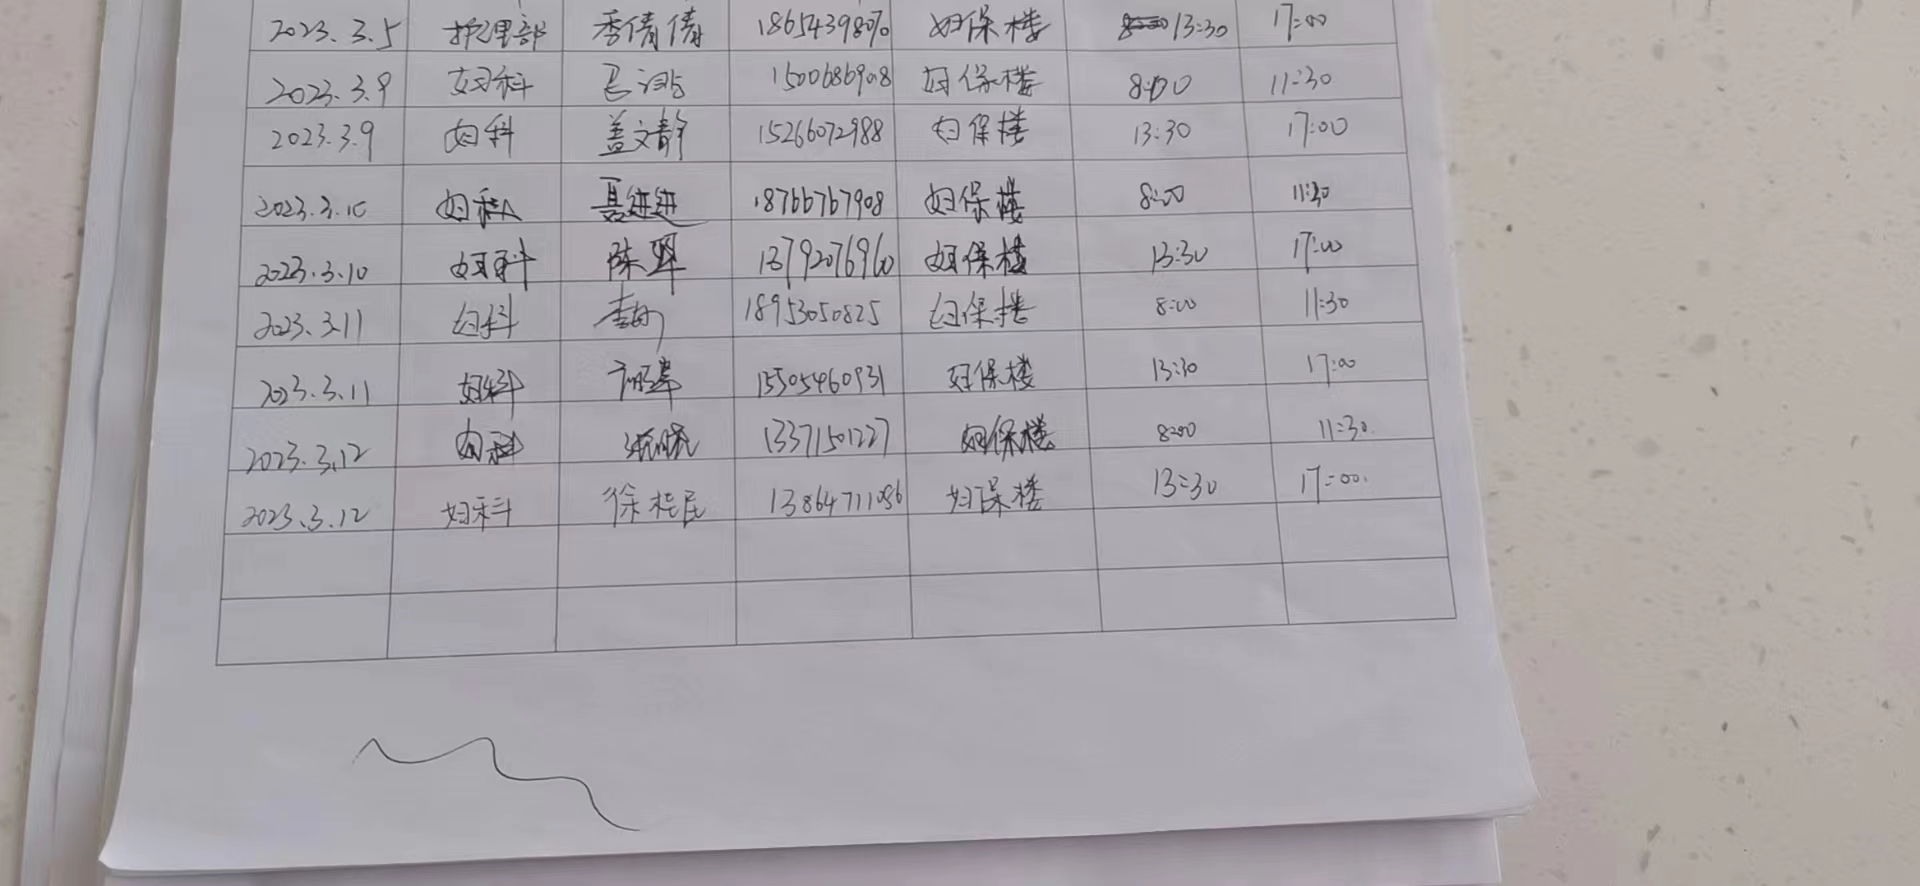 2023.3.5 护理部 季倩倩 妇保楼 13:30 17:00
2023.3.9 妇科 15006869908 妇保楼 8:00 11:30
2023.3.9 妇科 盖文静 15266072988 妇保楼 13:30 17:00
2023.3.10 妇科 聂进进 18766767908 妇保楼 8:00 11:30
2023.3.10 妇科 陈翠 13792076960 妇保楼 13:30 17:00
2023.3.11 妇科 18953050825 妇保楼 8:00 11:30
2023.3.11 妇科 15505460931 妇保楼 13:30 17:00
2023.3.12 妇科 13371501227 妇保楼 8:00 11:30.
2023.3.12 妇科 徐桂民 13864711086 妇保楼 13:30 17:00.